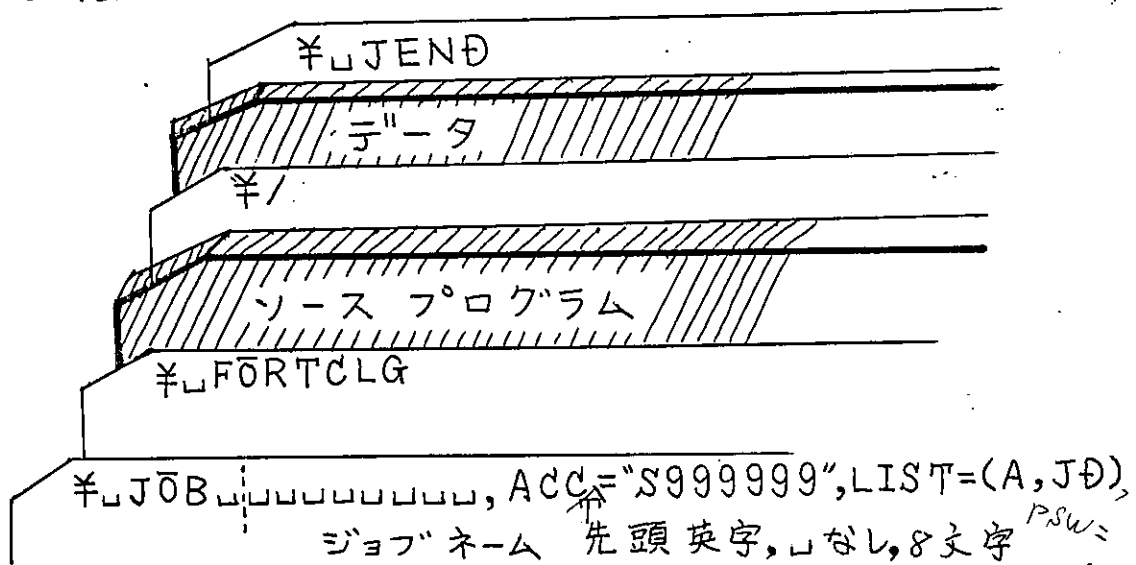 ¥␣JENĐ
データ
¥/
ソース プログラム
¥␣FŌRTCLG
¥␣JŌB␣␣␣␣␣␣␣␣␣, ACC="S999999",LIST=(A,JĐ),
ジョブネーム 先頭英字,␣なし,8文字 PSW=